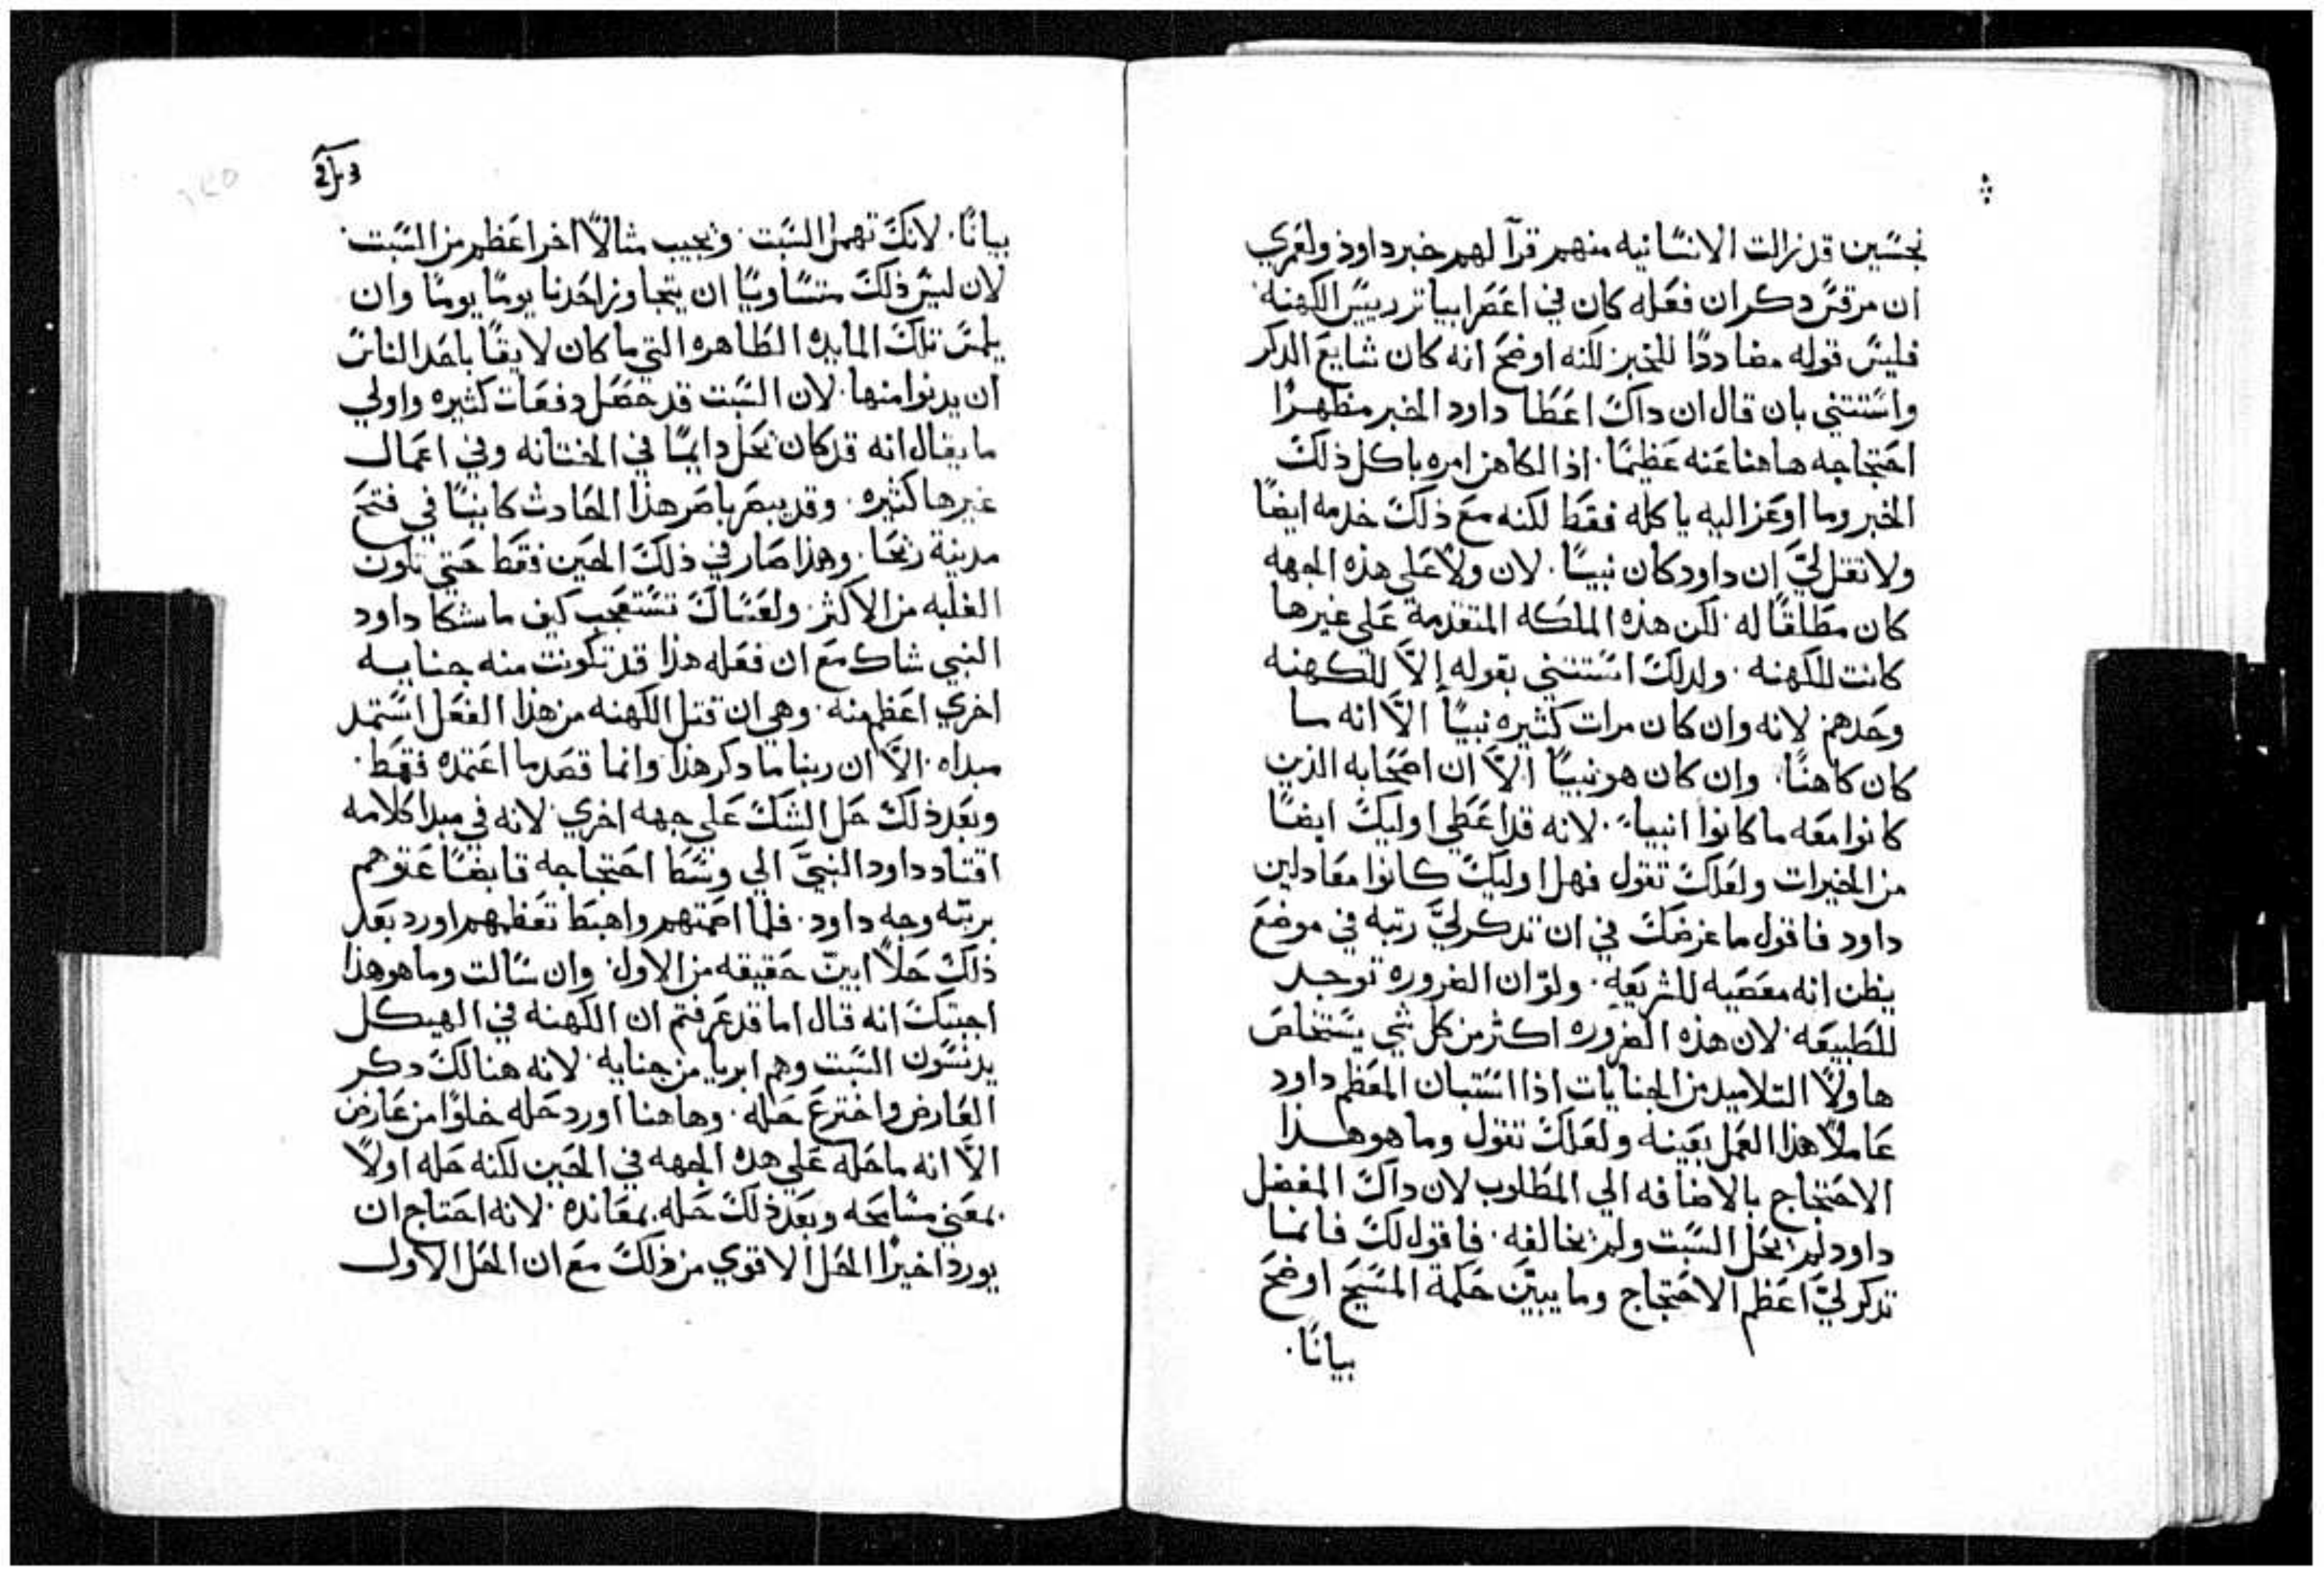 نجسين قد زالت الانسانيه منهم قرآ لهم خبر داوذ ولعمري
ان مرقس دكر ان فعله كان في اعصر ابياتر رييس الكهنه
فليس قوله مضاددًا للخبر لكنه اوضح انه كان شايع الدكر
واستتني بان قال ان داك اعطا داود الخبر مظهرًا
احتجاجه هاهنا عنه عظيمًا. اذ الكاهن امره باكل ذلك
الخبر وما اوعز اليه باكله فقط لكنه مع ذلك خدمه ايضًا
ولا تقل ليّ ان داود كان نبيًا. لان ولا علي هذه الجهه
كان مطلقًا له لكن هذه الملكه المتقدمة علي غيرها
كانت للكهنه. ولدلك استتني بقوله إلاّ للكهنه
وحدهم لانه وان كان مرات كثيره نبيًا الاّ انه ما
كان كاهنًا. وان كان هو نبيًا الاّ ان اصحابه الذين
كانوا معه ما كانوا انبياءً. لانه قد اعطي اوليك ايضًا
من الخيرات ولعلك تقول فهل اوليك كانوا معادلين
داود فاقول ما غرضك في ان تدكر ليّ رتبه في موضع
يظن انه معصيه للشريعه. ولوّ ان الضروره توجد
للطبيعه. لان هذه الضروره اكثر من كل شي يستخلص
هاولاّ التلاميد من الجنايات اذا استبان المعظم داود
عاملاً هذا العمل بعينه ولعلك تقول وما هو هذا
الاحتجاج بالاضافه الي المطلوب لان داك المفضل
داود لم يحل السبت ولم يخالفه. فاقول لك فانما
تدكر ليّ اعظم الاحتجاج وما يبيّن حكمة المسيح اوضح
بيانًا.
بيانًا. لانك تهمل السبت. ونجيب مثالاً اخر اعظم من السبت.
لان ليس ذلك متساويًا ان يتجاوز احدنا يومًا يومًا وان
يلمس تلك المايده الطاهره التي ما كان لايقًا باحد الناس
ان يدنوا منها. لان السبت قد حصل دفعات كثيره واولي
ما يقال انه قد كان يحل دايمًا في الختانه وفي اعمال
غيرها كثيره. وقد يبصر باصر هذا الحادث كاينًا في فتح
مدينة ريحا. وهذا صار في ذلك الحين فقط حتي تكون
الغلبه من الاكثر. ولعساك تستعجب كيف ما شكا داود
النبي شاك مع ان فعله هذا قد تكونت منه جنايه
اخري اعظم منه. وهي ان قتل الكهنه من هذا الفعل استمد
مبداه. الاّ ان ربنا ما دكر هذا وانما قصد ما اعتمده فقط.
وبعد ذلك حل الشك علي جهه اخري. لانه في مبدا كلامه
اقتاد داود النبيّ الي وسط احتجاجه قابضًا عتوهم
برتبه وجه داود. فلما اصمتهم واهبط تعظمهم اورد بعد
ذلك حلاً ابين حقيقه من الاول. وان سالت وما هو هذا
اجبتك انه قال اما قد عرفتم ان الكهنه في الهيكل
يدنسون السبت وهم ابريا من جنايه. لانه هنالك دكر
العارض واخترع حله. وهاهنا اورد حله خلوًا من عارض
الاّ انه ما حله علي هده الجهه في الحين لكنه حله اولاً
بمعني مسامحه وبعد ذلك حله بمعانده. لانه احتاج ان
يورد اخيرًا الحل الاقوي من ذلك مع ان الحل الاول